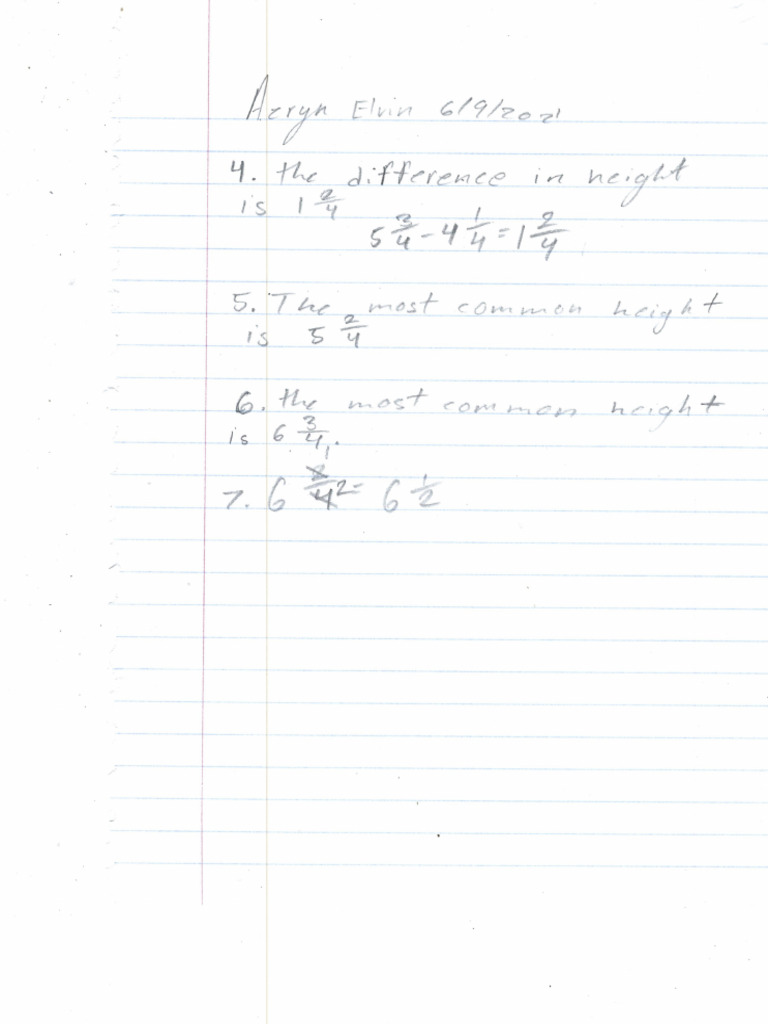 Azryn Elvin 6/9/2021
4. the difference in height
is 1 2/4
5 3/4 - 4 1/4 = 1 2/4
5. The most common height
is 5 2/4
6. the most common height
is 6 3/4.
7. 6 2/4 1 2 = 6 1/2